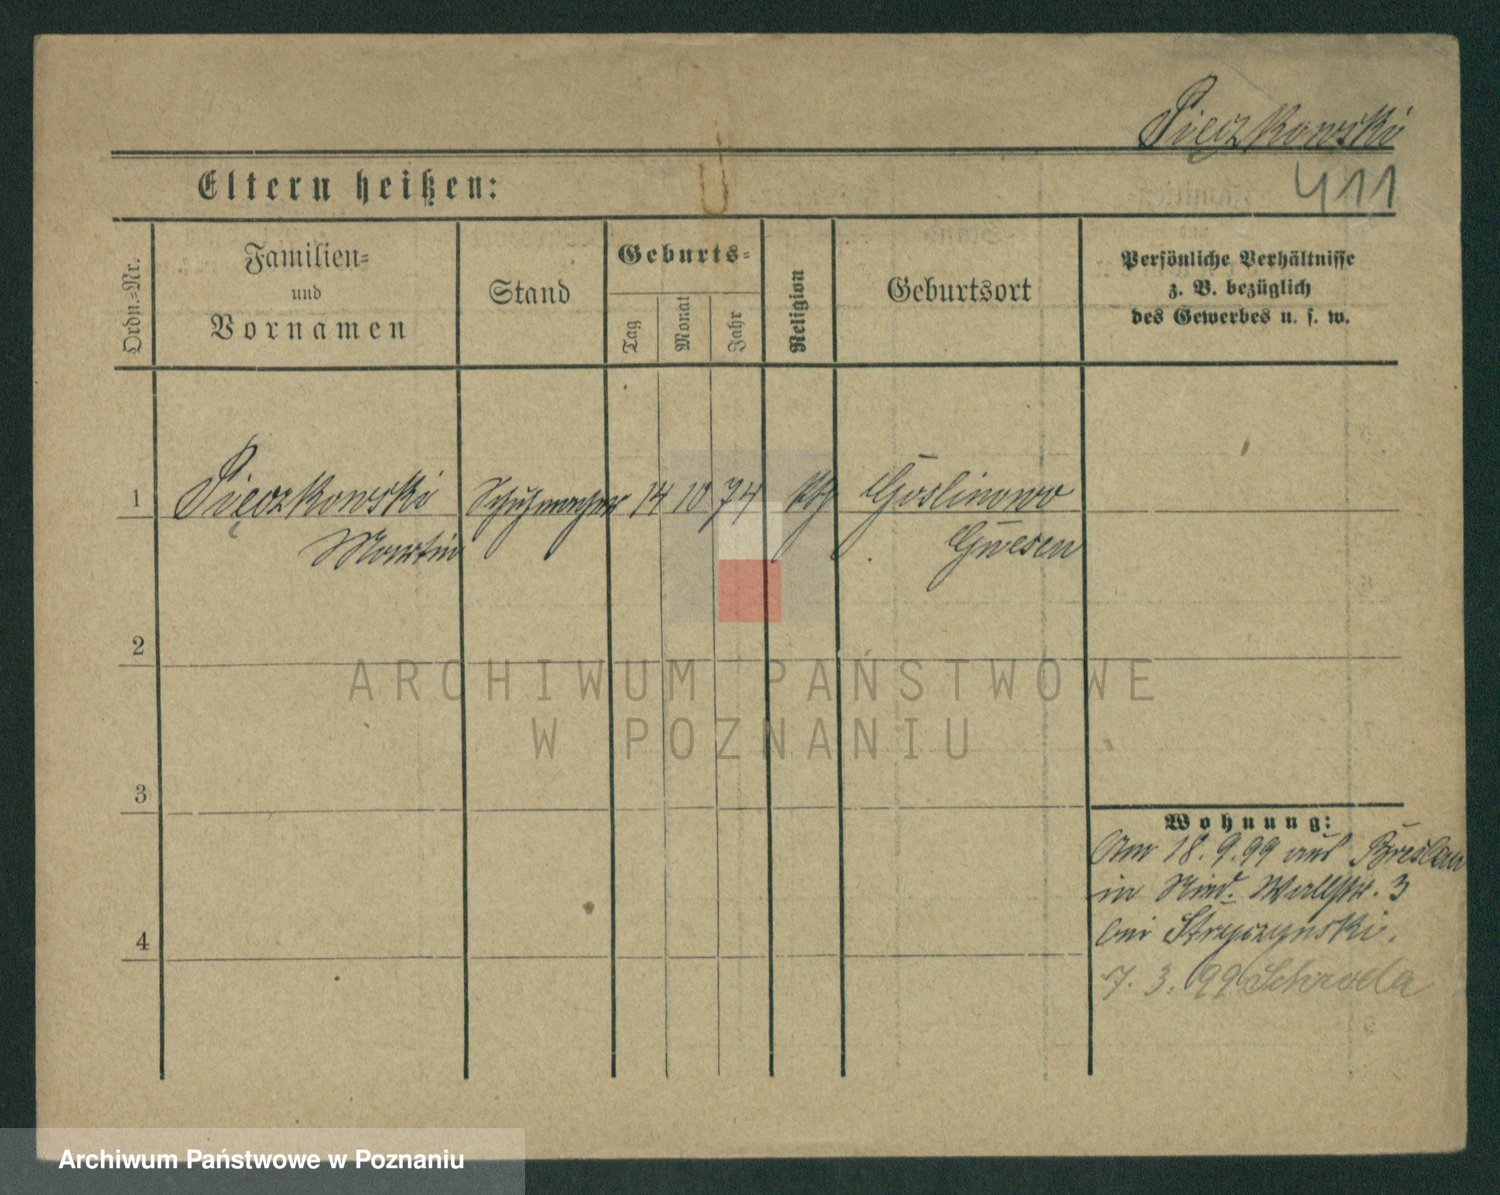 Pięczkowski
411
Eltern heißen:
Ordn.=Nr.
Familien=
und
Vornamen
Stand
Geburts=
Tag
Monat
Jahr
Religion
Geburtsort
Persönliche Verhältnisse
z. B. bezüglich
des Gewerbes u. s. w.
1 Pięczkowski Schuhmacher 14 10 74 kth Goslinowo
Martin Gnesen
2
ARCHIWUM PAŃSTWOWE
W POZNANIU
3
Wohnung:
Am 18.9.99 aus Breslau
in Nied. Wallstr. 3
bei Stryczynski.
4
7.3.99 Schroda
Archiwum Państwowe w Poznaniu